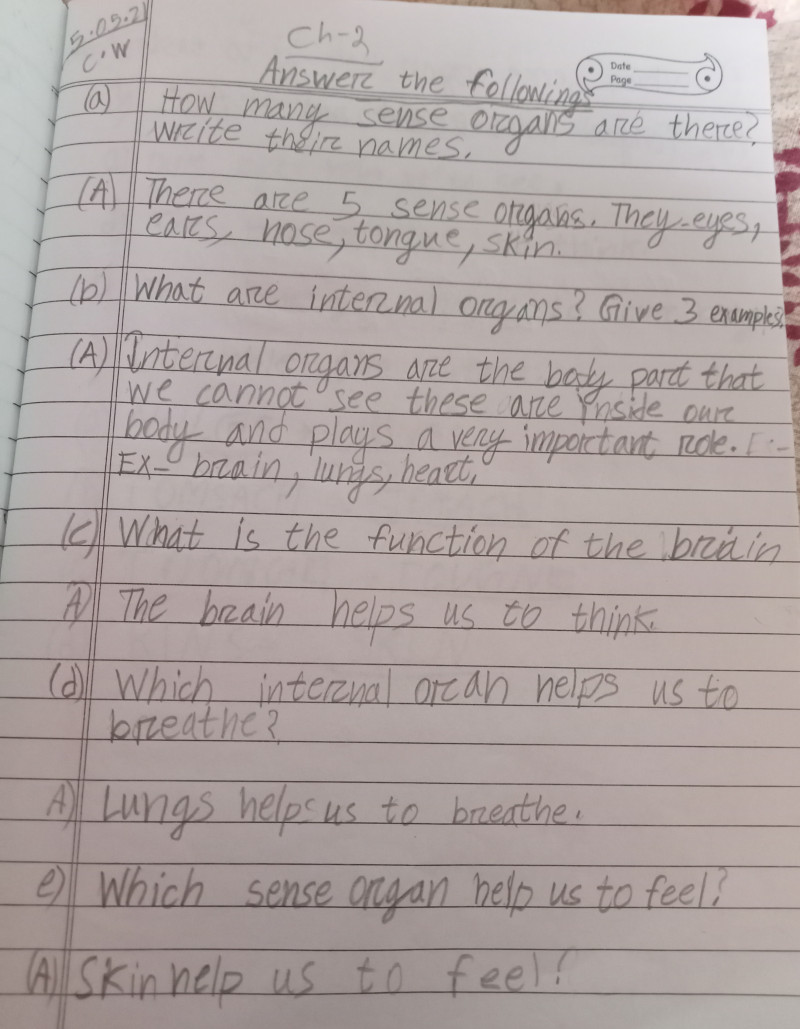 5.05.21
C.W
Ch-2
Date
Page
Answer the followings
(a) How many sense organs are there?
Write their names.
(A) There are 5 sense organs. They-eyes,
ears, nose, tongue, skin.
(b) What are internal organs? Give 3 examples.
(A) Internal organs are the body part that
we cannot see these are inside our
body and plays a very important role.
EX- brain, lungs, heart,
(c) What is the function of the brain
A) The brain helps us to think.
(d) Which internal orcan helps us to
breathe?
A) Lungs helps us to breathe.
e) Which sense organ help us to feel?
(A) Skin help us to feel!